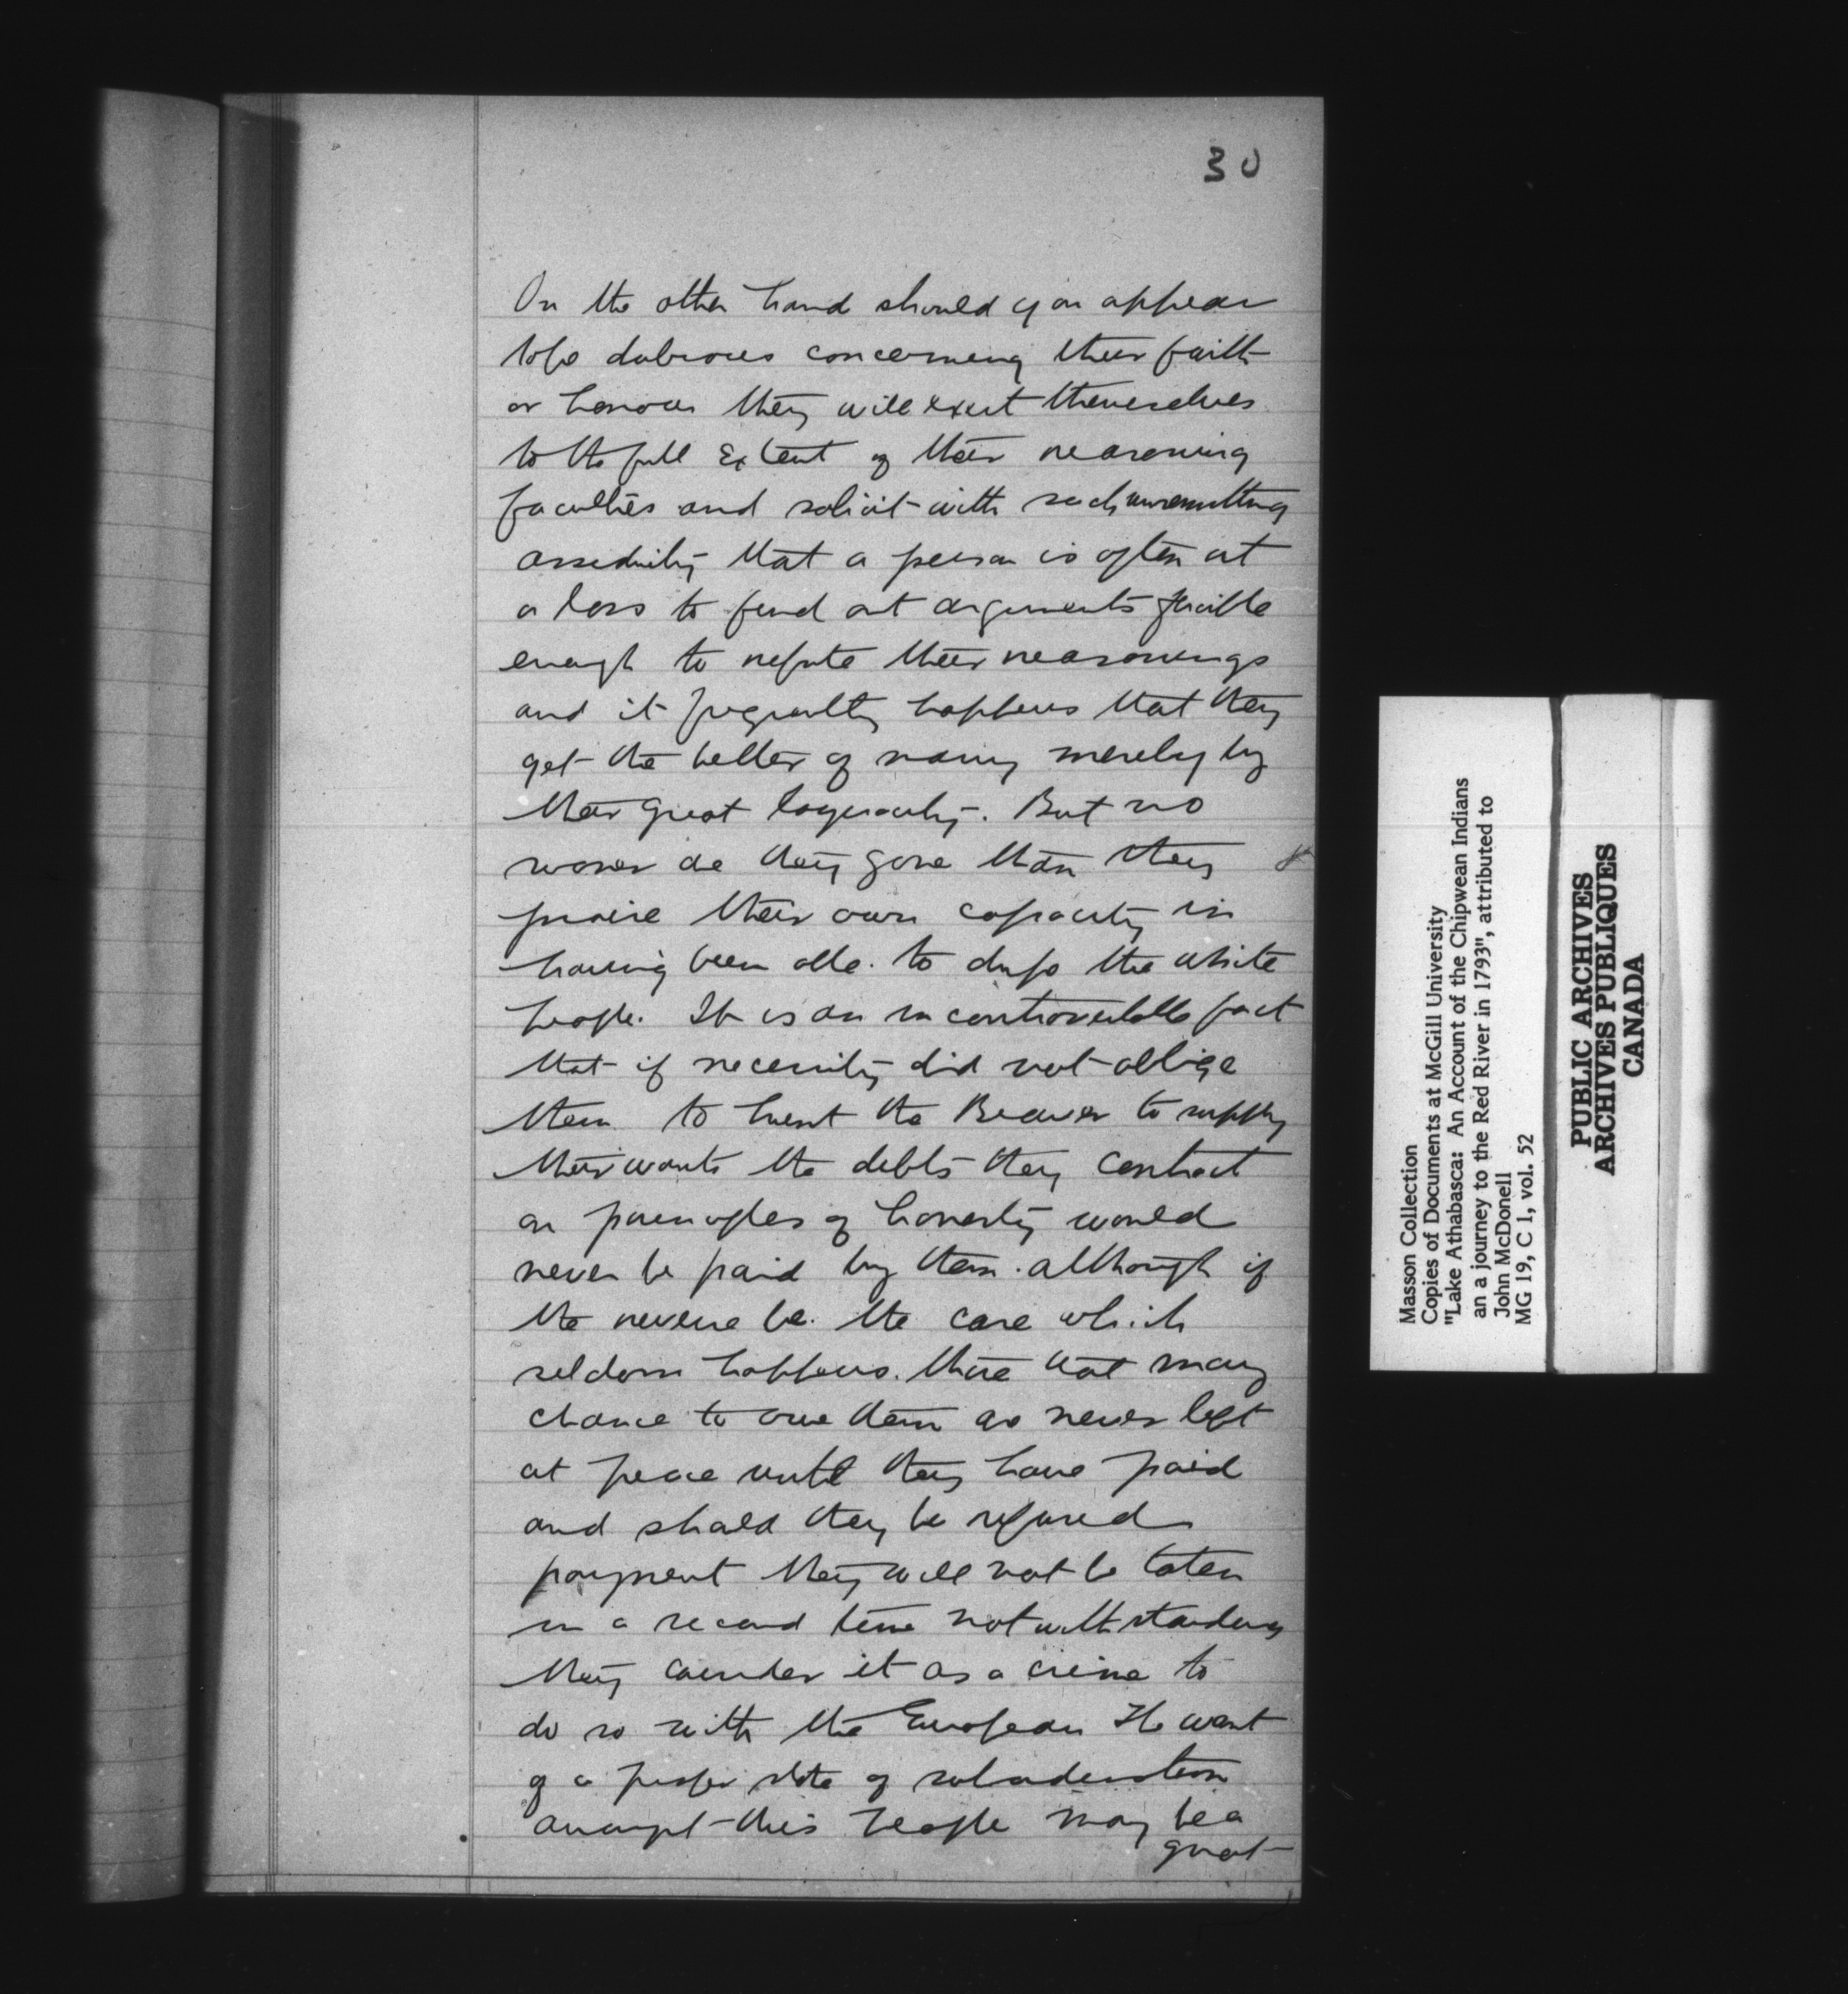 30
On the other hand should you appear
to be dubious concerning their faith
or honour they will exert themselves
to the full Extent of their reasoning
faculties and solicit with such unremitting
assiduity that a person is often at
a loss to find out arguments forcible
enough to refute their reasonings
and it frequently happens that they
get the better of many merely by
their great loquacity. But no
sooner are they gone than they
praise their own capacity in
having been able to dupe the white
people. It is an incontrovertible fact
that if necessity did not oblige
them to hunt the Beaver to supply
their wants the debts they contract
on principles of honesty would
never be paid by them. although if
the reverse be the case which
seldom happens. those that may
chance to owe them are never left
at peace until they have paid
and should they be refused
payment they will not be taken
in a second time notwithstanding
they consider it as a crime to
do so with the European The want
of a proper state of subordination
amongst this People may be a
great
Masson Collection
Copies of Documents at McGill University
"Lake Athabasca: An Account of the Chipwean Indians
an a journey to the Red River in 1793", attributed to
John McDonell
MG 19, C 1, vol. 52
PUBLIC ARCHIVES
ARCHIVES PUBLIQUES
CANADA